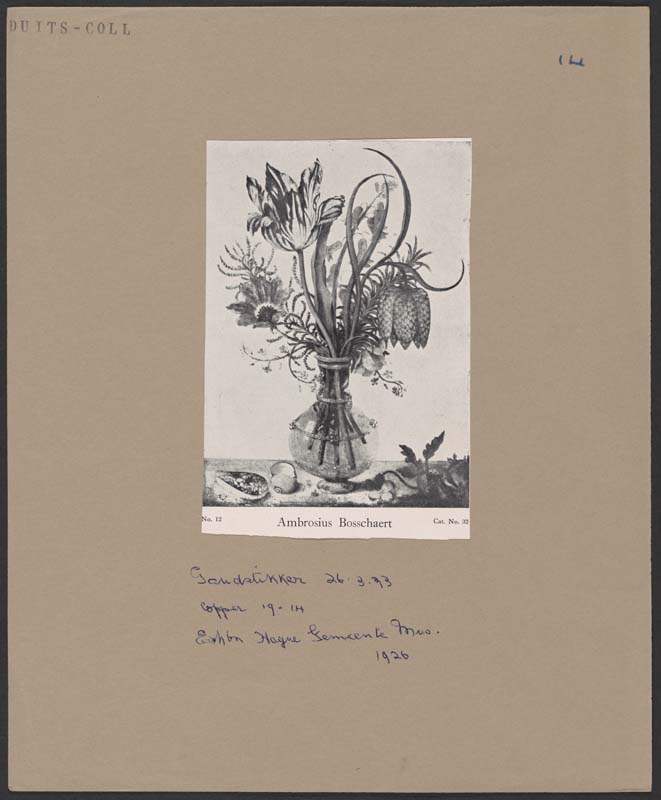 DUITS-COLL
14
No. 12 Ambrosius Bosschaert Cat. No. 32
Goudstikker 26.3.33
Copper 19-14
Exhbn Hague Gemeente Mus.
1926